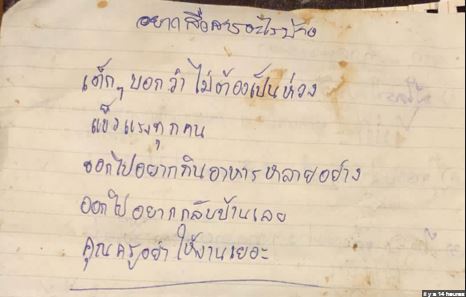 อยากสื่อสารอะไรบ้าง
เด็กๆ บอกว่า ไม่ต้องเป็นห่วง
แข็งแรงทุกคน
ออกไปอยากกินอาหารหลายอย่าง
ออกไปอยากกลับบ้านเลย
คุณครูอย่าให้งานเยอะ
il y a 14 heures